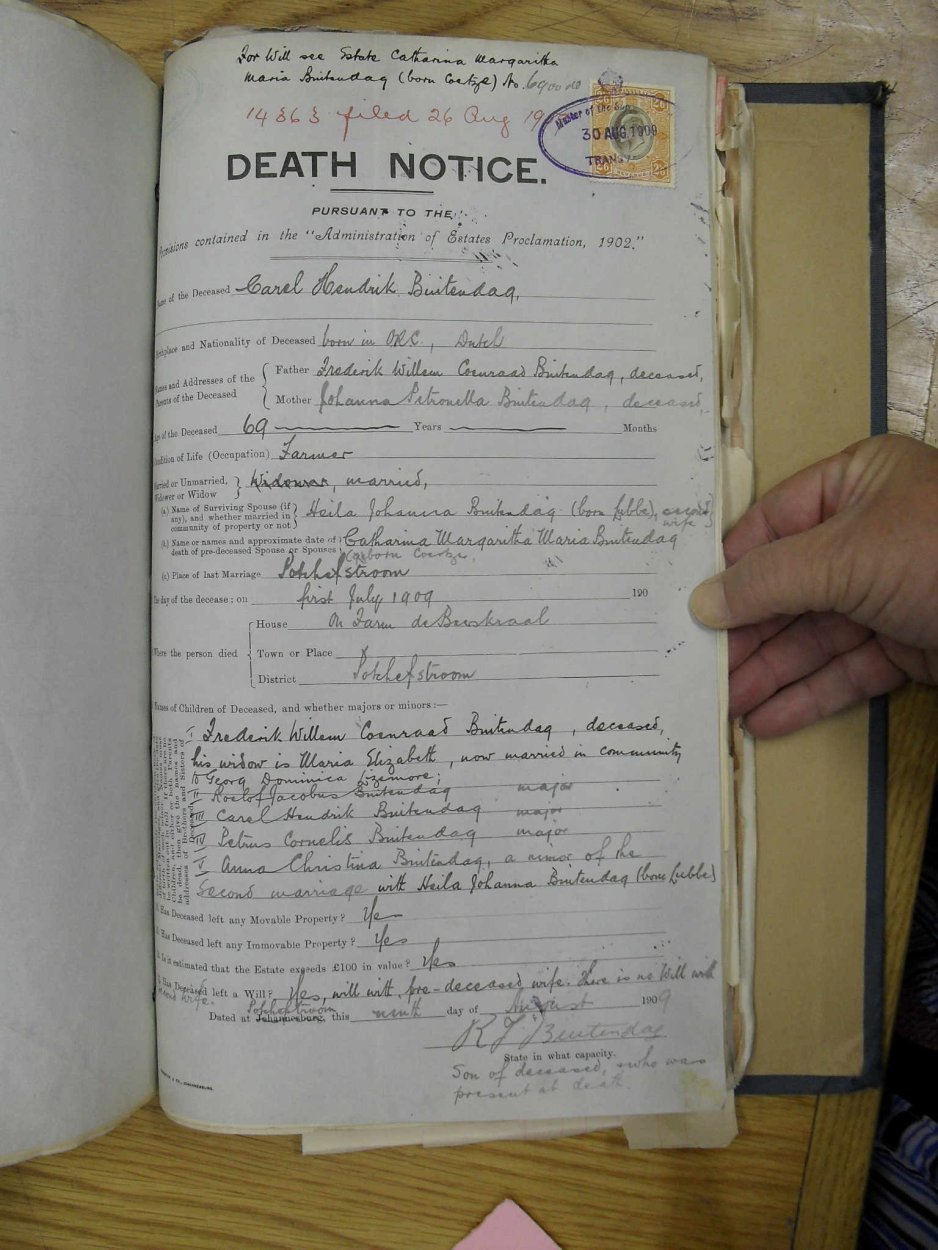 For Will see Estate Catharina Margaritha
Maria Buitendag (born Coetze) No. 6900
14363 filed 26 Aug 19
Master of the
30 AUG 1909
TRANS
2/6 2/6
REVENUE
2/6 2/6
DEATH NOTICE.
PURSUANT TO THE
Provisions contained in the "Administration of Estates Proclamation, 1902."
Name of the Deceased Carel Hendrik Buitendag,
Birthplace and Nationality of Deceased born in ORC, Dutch
Names and Addresses of the Parents of the Deceased
Father Frederik Willem Coenraad Buitendag, deceased,
Mother Johanna Petronella Buitendag, deceased,
Age of the Deceased 69 Years Months
Condition of Life (Occupation) Farmer
Married or Unmarried,
Widower or Widow
Widower, married,
(a) Name of Surviving Spouse (if
any), and whether married in
community of property or not
Heila Johanna Buitendag (born Lubbe), second
wife
(b) Name or names and approximate date of
death of pre-deceased Spouse or Spouses
Catharina Margaritha Maria Buitendag
born Coetze,
(c) Place of last Marriage Potchefstroom
The day of the decease: on first July 1909 190
Where the person died
House On Farm
Town or Place
District Potchefstroom
Names of Children of Deceased, and whether majors or minors:—
I Frederik Willem Coenraad Buitendag, deceased,
his widow is Maria Elizabeth, now married in community
to Georg Dominica
II Roelof Jacobus Buitendag major
III Carel Hendrik Buitendag major
IV Petrus Cornelis Buitendag major
V Anna Christina Buitendag, a minor of the
Second marriage with Heila Johanna Buitendag (born Lubbe)
be dead, then give the names and
addresses of Brothers and Sisters of
Deceased
Has Deceased left any Movable Property? Yes
Has Deceased left any Immovable Property? Yes
Is it estimated that the Estate exceeds £100 in value? Yes
Has Deceased left a Will? Yes, will with pre-deceased wife. There is no Will with
second wife.
Potchefstroom
Dated at Johannesburg, this ninth day of August 1909
R J Buitendag
State in what capacity.
Son of deceased, who was
present at death.